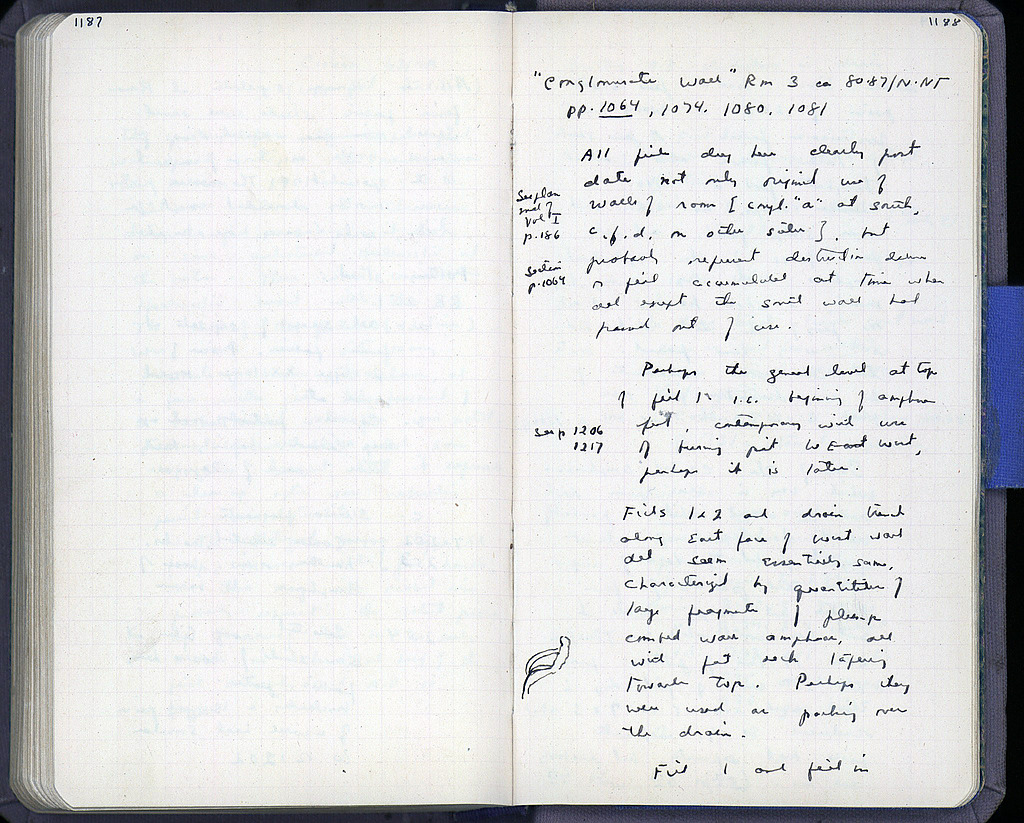 1187
1188
"Conglomerate Wall" Rm 3 ca 80-87/N-NT
pp. 1064, 1074, 1080, 1081
All fills dug here clearly post
date not only original use of
walls of room [congl. "a" at south,
c.f.d. on other sides], but
probably represent destruction debris
or fill accumulated at time when
all except the south wall had
passed out of use.
See plan
end of
Vol I
p. 186
Section
p. 1064
Perhaps the general level at top
of fill 1, i.e. beginning of amphora
fill, contemporary with use
of burning pit to East West,
perhaps it is later.
See p 1206
1217
Fills 1 & 2 and drain trench
along East face of west wall
all seem essentially same,
characterized by quantities of
large fragments of
combed ware amphoras, all
with neck tapering
towards top. Perhaps they
were used as packing over
the drain.
Fill 1 and fill in